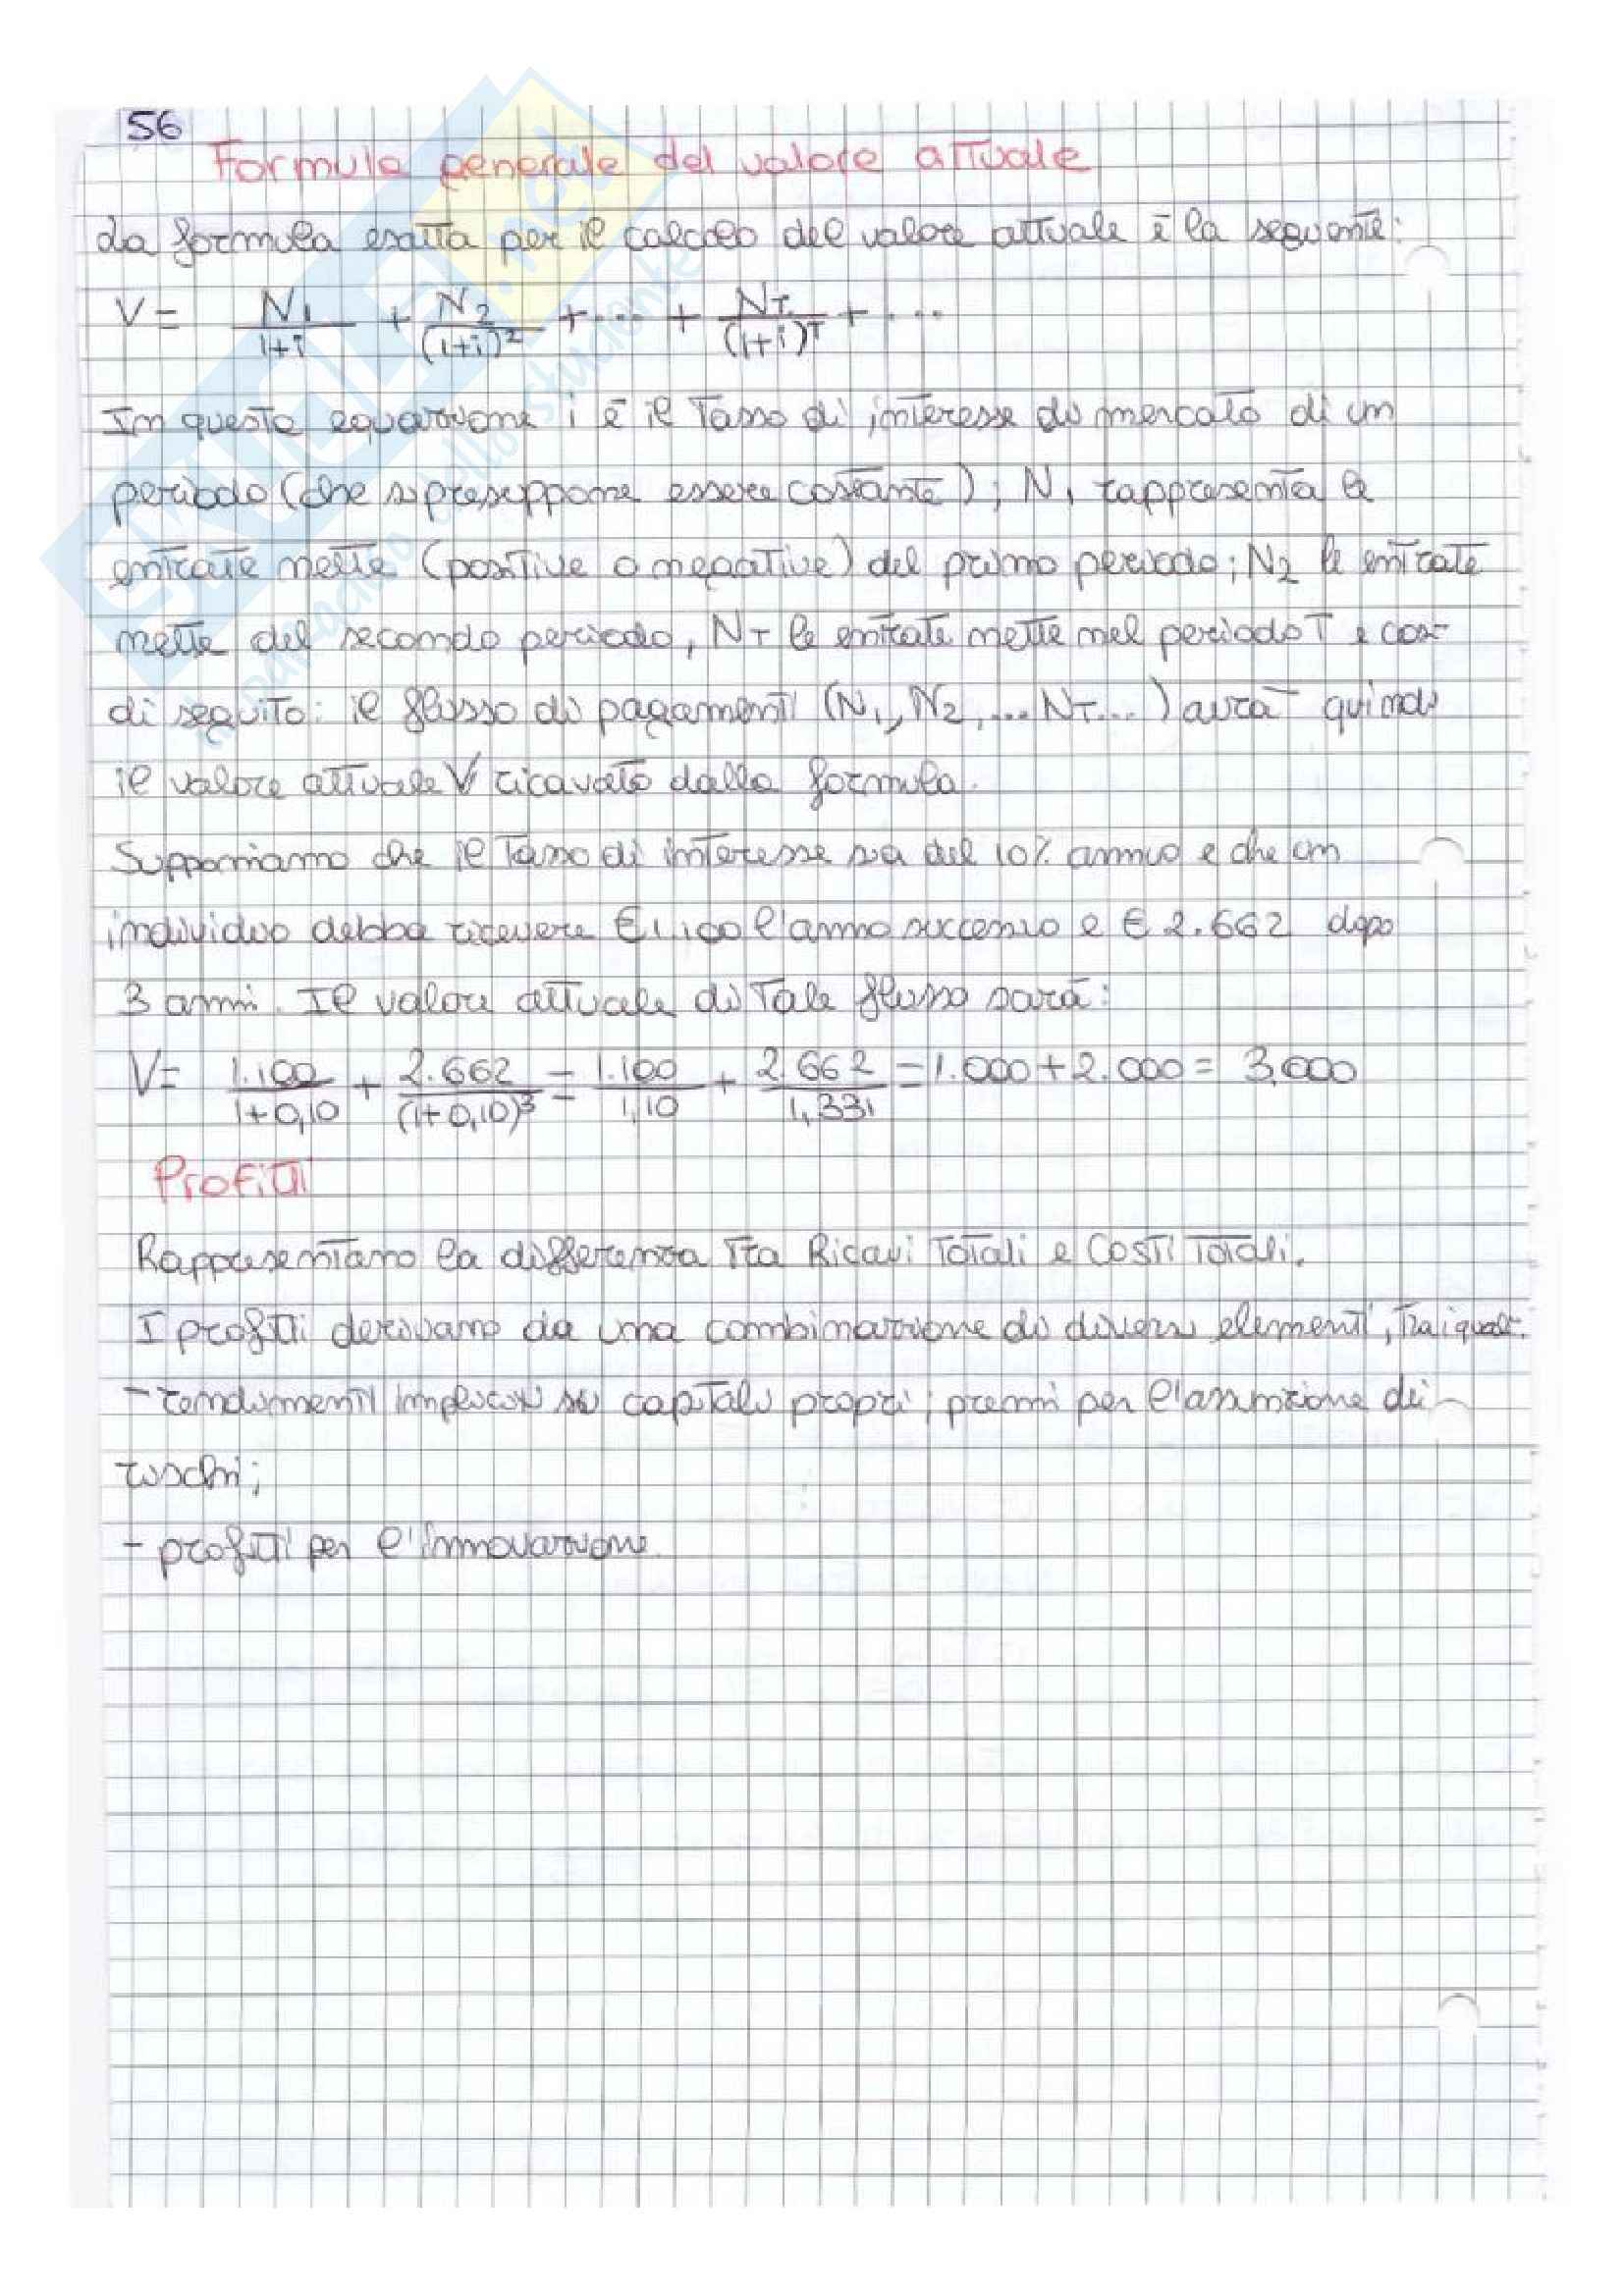 56
Formula generale del valore attuale
La formula esatta per il calcolo del valore attuale è la seguente:
V = N1/(1+i) + N2/(1+i)² + ... + NT/(1+i)^T + ...
In questa equazione i è il tasso di interesse di mercato di un
periodo (che si presuppone essere costante); N1 rappresenta le
entrate nette (positive o negative) del primo periodo; N2 le entrate
nette del secondo periodo, NT le entrate nette nel periodo T e così
di seguito: il flusso di pagamenti (N1, N2, ... NT...) avrà quindi
il valore attuale V ricavato dalla formula.
Supponiamo che il tasso di interesse sia del 10% annuo e che un
individuo debba ricevere € 1.100 l'anno successivo e € 2.662 dopo
3 anni. Il valore attuale di tale flusso sarà:
V = 1.100/(1+0,10) + 2.662/(1+0,10)³ = 1.100/1,10 + 2.662/1,331 = 1.000+2.000 = 3.000
Profitti
Rappresentano la differenza tra Ricavi Totali e Costi Totali.
I profitti derivano da una combinazione di diversi elementi, tra i quali:
- rendimenti impliciti su capitali propri; premi per l'assunzione dei
rischi;
- profitti per l'innovazione.
SKUOLA.net
il paradiso dello studente